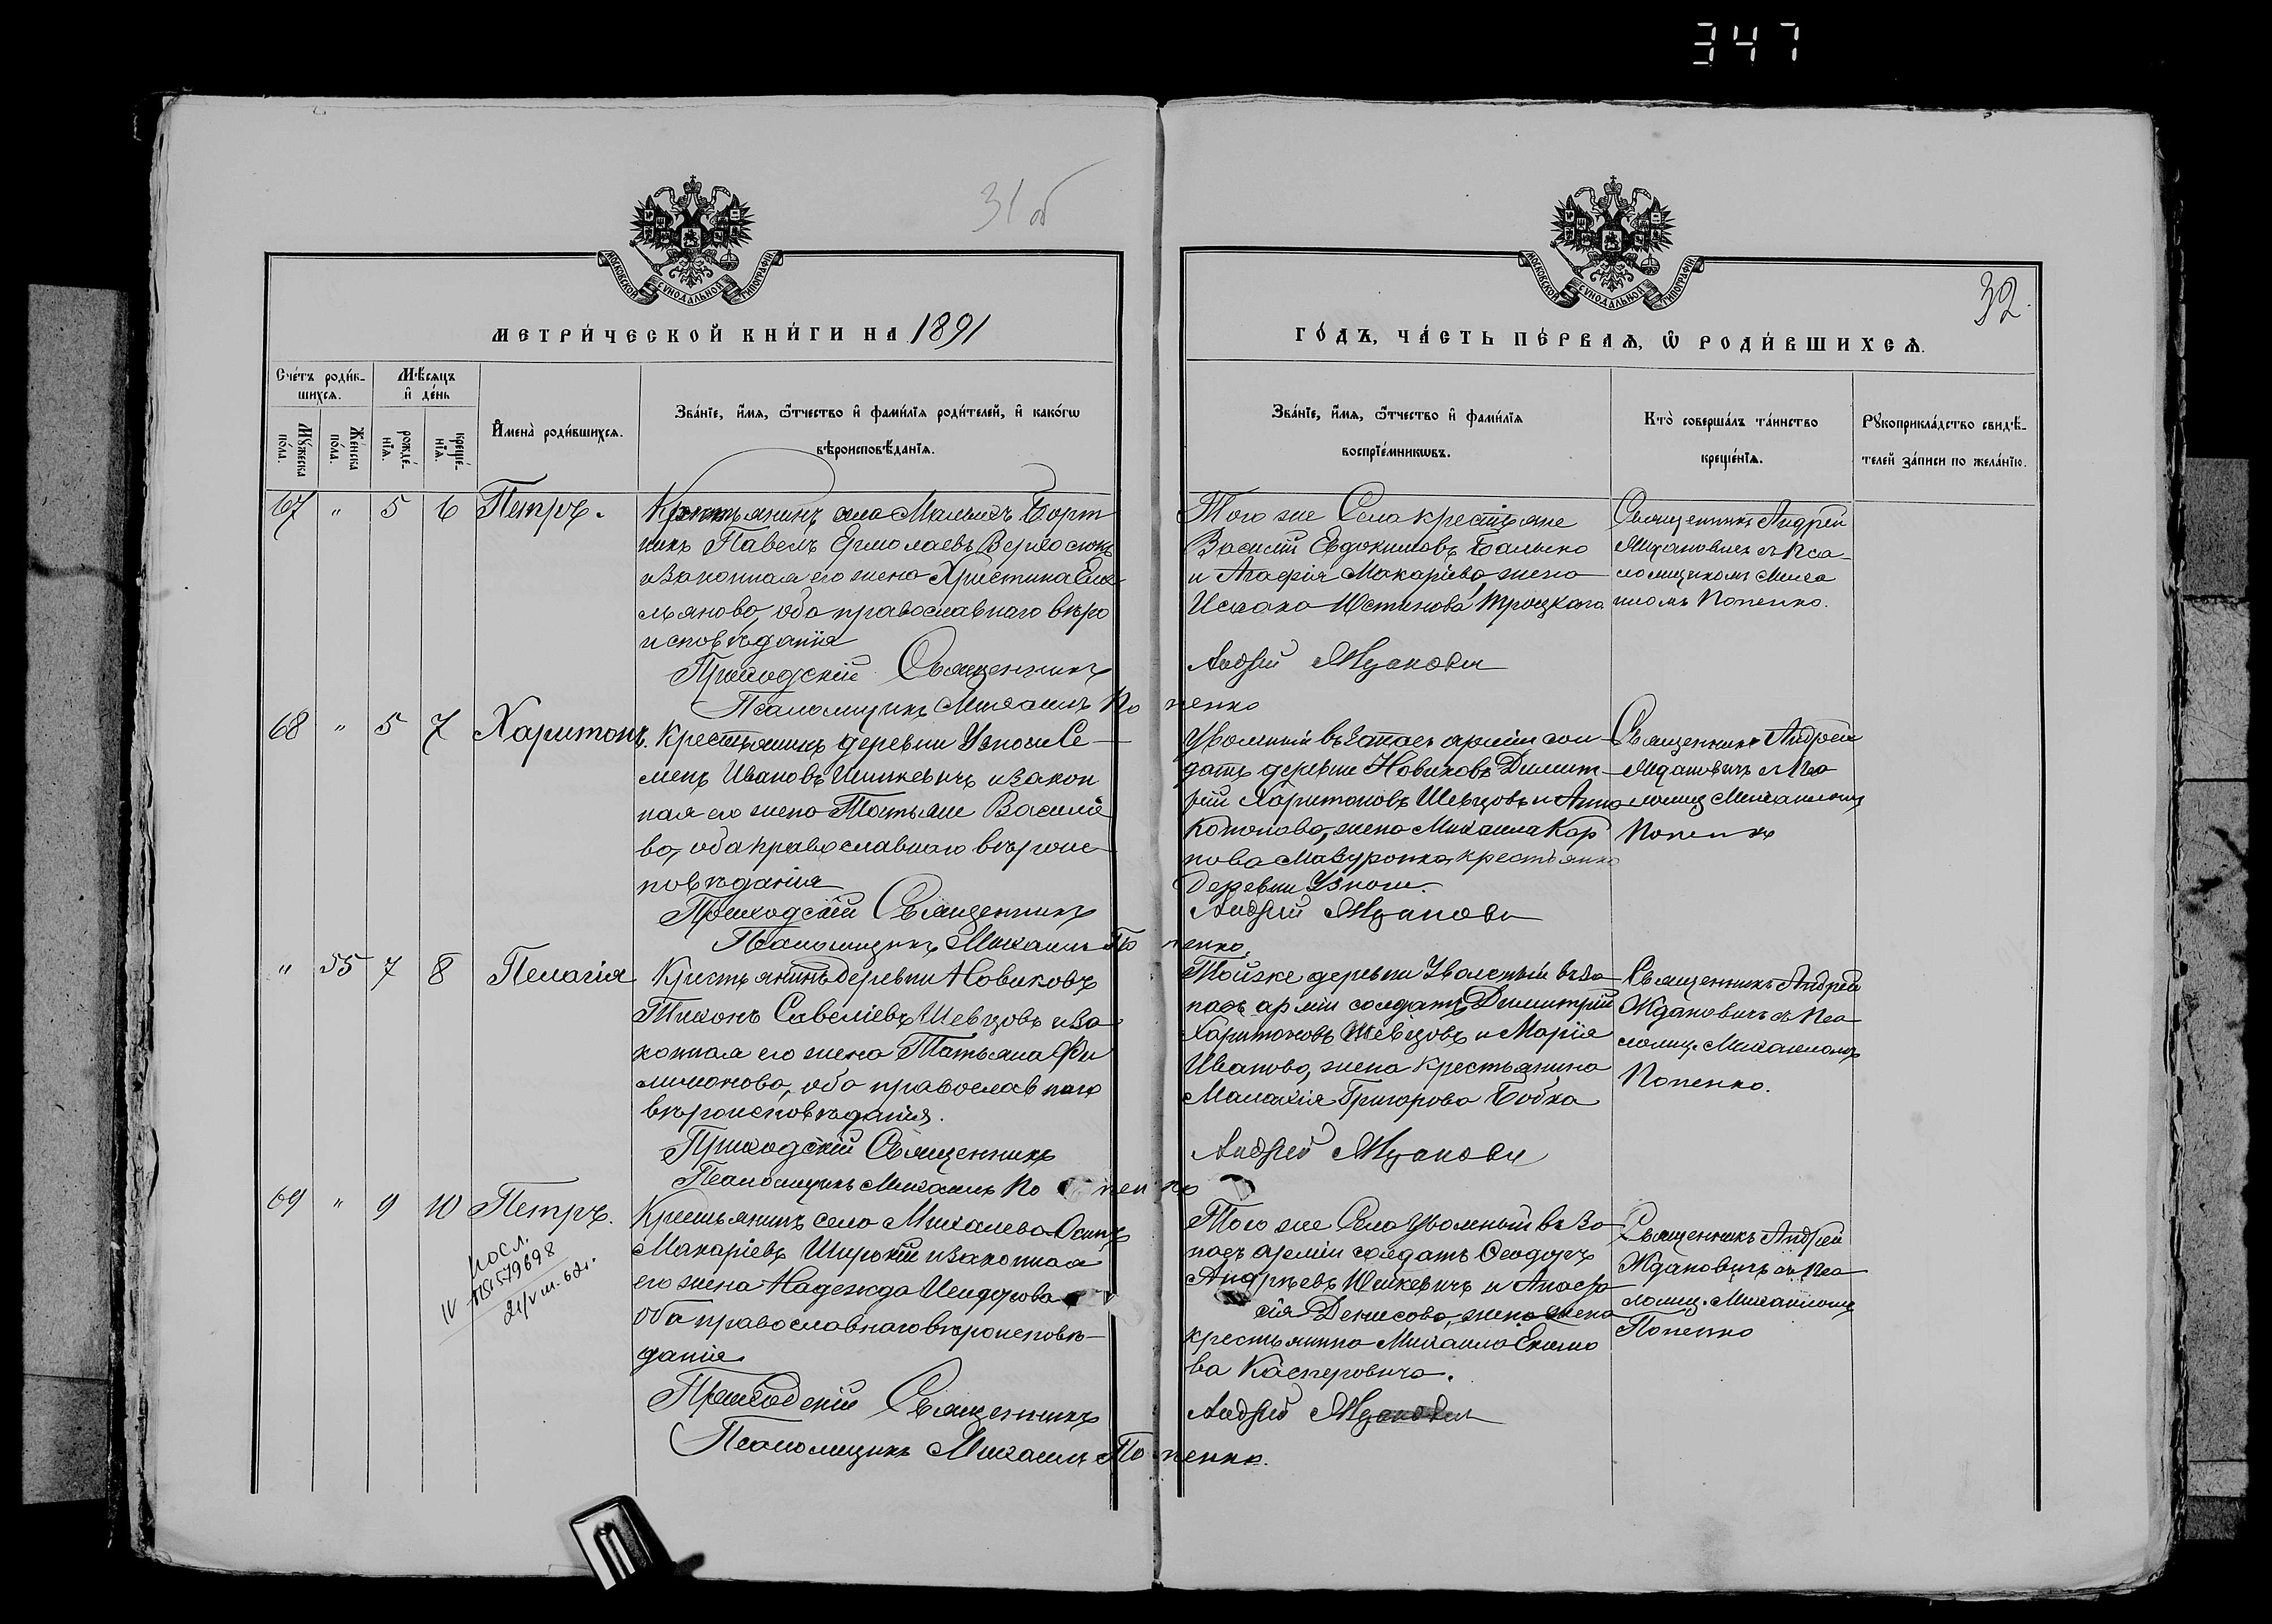 347
31 об
32.
МОСКОВСКОЙ СѴНОДАЛЬНОЙ ТИПОГРАФІИ
МОСКОВСКОЙ СѴНОДАЛЬНОЙ ТИПОГРАФІИ
МЕТРИ́ЧЕСКОЙ КНИ́ГИ НА 1891
ГО́ДЪ, ЧА́СТЬ ПЕ́РВАѦ, Ѽ РОДИ́ВШИХСѦ.
Счéтъ роди́в-
шихсѧ.
Мꙋ́жеска
по́ла.
Же́нска
по́ла.
Мѣ́сѧцъ
и҆ де́нь
рожде́-
нїѧ.
креще́-
нїѧ.
И҆мена̀ роди́вшихсѧ.
Зва́нїе, и҆́мѧ, ѻ҆́тчество и҆ фами́лїѧ роди́телей, и҆ како́гѡ
вѣроисповѣ́данїѧ.
Зва́нїе, и҆́мѧ, ѻ҆́тчество и҆ фами́лїѧ
воспрїе́мникѡвъ.
Кто̀ соверша́лъ та́инство
креще́нїѧ.
Рꙋкоприкла́дство свидѣ́-
телей за́писи по жела́нїю.
67 " 5 6 Петръ.
Крестьянинъ села Малыхъ Борт
никъ Павелъ Ермолаевъ
и законная его жена Христина Еме
льянова, оба православнаго вѣро
исповѣданія
Приходскій Священникъ
Псаломщикъ Михаилъ Попенко
Того же Села крестьяне
Василій Евдокимовъ Балыко
и Агафія Макаріева, жена
Исаака Устинова Троцкаго
Андрей Жданович
Священникъ Андрей
Ждановичъ съ Пса-
ломщикомъ Миха
иломъ Попенко.
68 " 5 7 Харитонъ.
Крестьянинъ деревни Узноги Се-
менъ Ивановъ Шишкевичъ и закон
ная его жена Татьяна Василіе
ва, оба православнаго вѣроис
повѣданія
Приходскій Священникъ
Псаломщикъ Михаилъ Попенко
Уволенный въ запасъ арміи сол-
датъ деревни Новиковъ Димит-
рій Харитоновъ Шевцовъ и Анна
Кононова, жена Михаила Кар
пова Мазуронка, крестьянка
деревни Узноги.
Андрей Жданович
Священникъ Андрей
Ждановичъ съ Пса
ломщ. Михаиломъ
Попенко
" 55 7 8 Пелагія
Крестьянинъ деревни Новиковъ
Тихонъ Савеліевъ Шевцовъ и за
конная его жена Татьяна Фи
лимонова, оба православнаго
вѣроисповѣданія.
Приходскій Священникъ
Псаломщикъ Михаилъ Попенко
Той же деревни Уволенный въ за
пасъ арміи солдатъ Димитрій
Харитоновъ Шевцовъ и Марія
Иванова, жена крестьянина
Малахія Григорова Бобка
Андрей Жданович
Священникъ Андрей
Ждановичъ съ Пса
ломщ. Михаиломъ
Попенко.
69 " 9 10 Петръ.
IV
579698
Крестьянинъ села Михалева Осипъ
Макаріевъ Широкій и законная
его жена Надежда
оба православнаго вѣроисповѣ-
данія.
Приходскій Священникъ
Псаломщикъ Михаилъ Попенко.
Того же Села Уволенный въ за
пасъ арміи солдатъ Ѳеодоръ
Андреевъ Шикевичъ и Анаста
сія Денисова, жена жена
крестьянина Михаила
ва Касперовича.
Андрей Жданович
Священникъ Андрей
Ждановичъ съ Пса
ломщ. Михаиломъ
Попенко